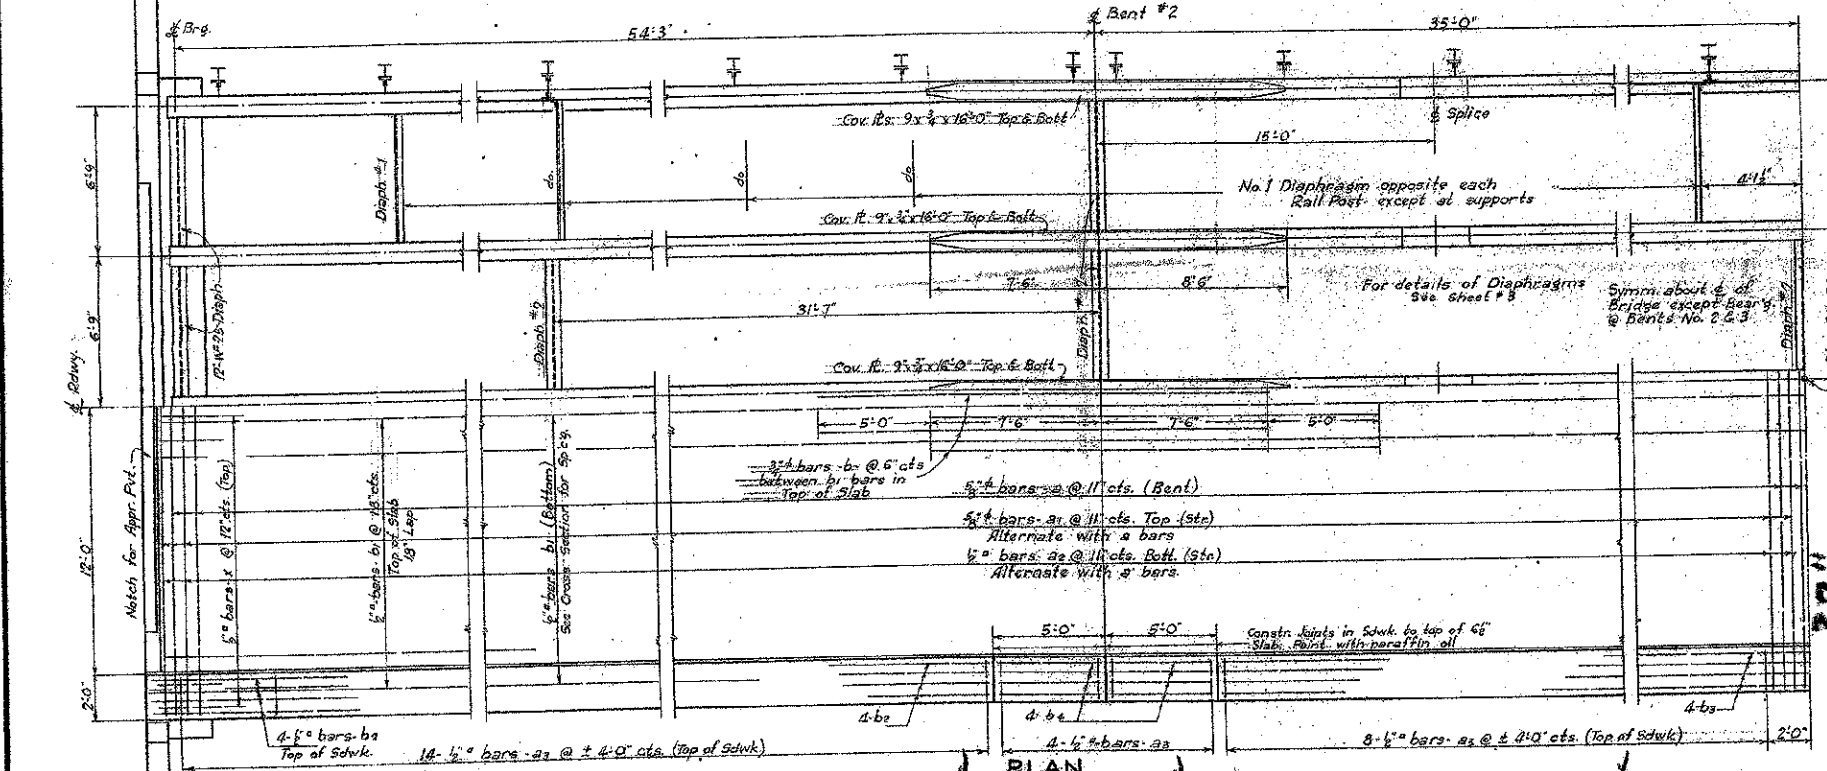 ℄ Brg.
54'-3"
℄ Bent #2
35'-0"
Cov. Pls. 9 x ¾ x 16'-0" Top & Bott
℄ Splice
15'-0"
6'-9"
Diaph #1
do.
do
do
No. 1 Diaphragm opposite each
Rail Post except at supports
4'-1½"
Cov. Pl. 9" x ¾" x 16'-0" Top & Bott.
7'-6"
8'-6"
For details of Diaphragms
See Sheet #3
Symm. about ℄ of
Bridge except Bear'g.
@ Bents No. 2 & 3
6'-9"
Diaph #2
31'-7"
Diaph
Diaph.
℄ Rdwy.
Cov. Pl. 9" x ¾" x 16'-0" Top & Bott
5'-0"
7'-6"
7'-6"
5'-0"
12'-0"
Notch for Appr. Pvt.
½"⌀ bars-x @ 12" cts. (Top)
Top of Slab
18" Lap
½"⌀ bars b1 (Bottom)
See Cross Section for Sp'c'g.
¾"⌀ bars-b @ 6" cts
between b1 bars in
Top of Slab
⅝"⌀ bars-a @ 11" cts. (Bent)
⅝"⌀ bars-a1 @ 11" cts. Top (Str)
Alternate with a bars
½"⌀ bars a2 @ 11" cts. Bott. (Str.)
Alternate with a bars.
5'-0"
5'-0"
Constr. Joints in Sdwk. to top of 6½"
Slab. Paint with paraffin oil
2'-0"
4-½"⌀ bars-b2
Top of Sdwk.
4-b2
4-b4
4-b3
14-½"⌀ bars-a3 @ ± 4'-0" cts. (Top of Sdwk)
4-½"⌀ bars-a3
8-½"⌀ bars-a3 @ ± 4'-0" cts. (Top of Sdwk)
2'-0"
PLAN